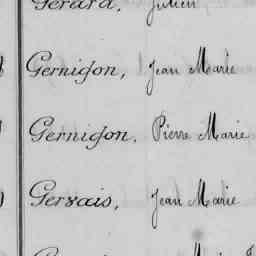 Gérard, Julien
Gernigon, Jean Marie
Gernigon. Pierre Marie
Gervais, Jean Marie